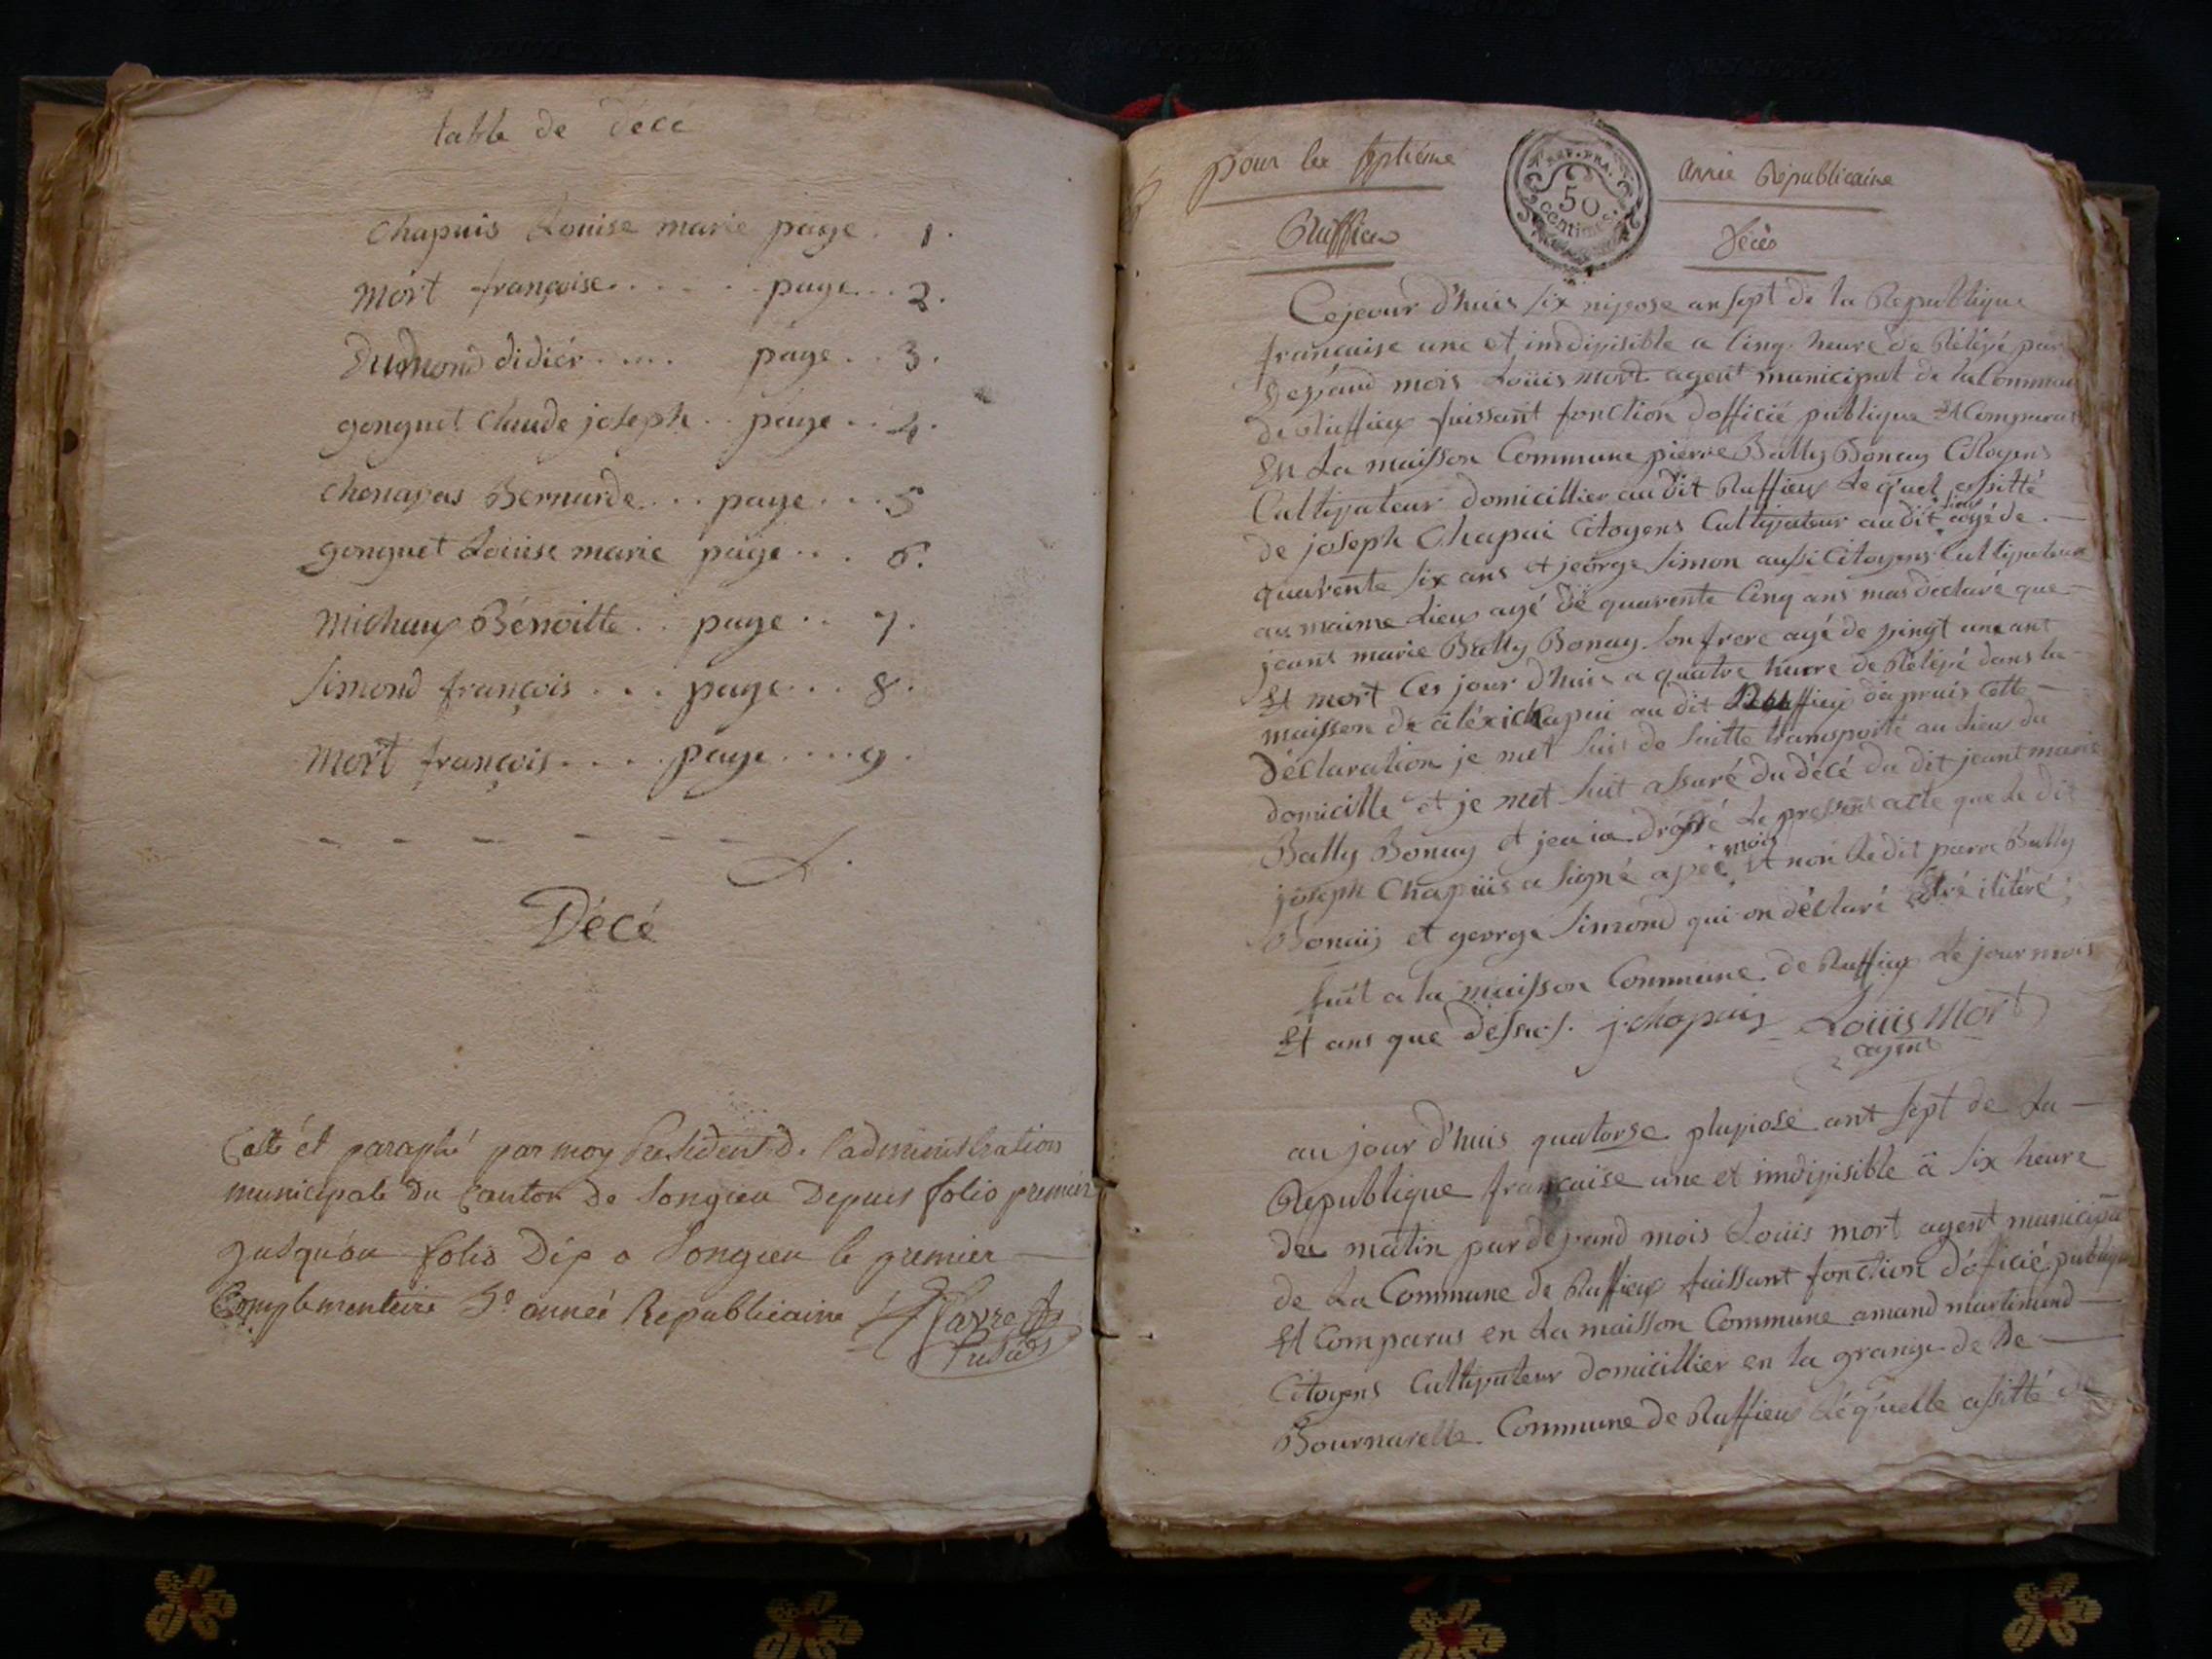 table de décé
Chapuis Louise marie page . 1 .
Mort françoise . . . . . page . . . 2 .
Dumond didiér . . . . page . . 3 .
gonguet Claude joseph . . page . . 4 .
Chenavas Bernarde . . . page . . . 5
gonguet Loüise marie page . . . 6 .
Michaux Bénoitte . . page . . 7 .
Simond françois . . . page . . . 8 .
Mort françois . . . . . page . . . . 9 .
Décé
Cotté et paraphé par moy President De l'administration
municipale du Canton de Songieu Depuis folio premier
Jusqu'au folio Dix a Songieu le premier
Complementaire année Republicaine
pour les septiéme
REP. FRA.
50
centimes
annie Republicaine
Ruffieu
Décès
Cejour d'huis six nivose an sept de la Republique
francaise une et imdivisible a cinq heure de Rélevé par
devand mois Loüis mort agent municipal de la Commune
de Ruffieux faissant fonction dofficié publique Et Comparus
En La maisson Commune pierre Bally Bonay Citoyens
Cultivateur domicillier au dit Ruffieux Le quel assitté
de joseph Chapui Citoyens Cultivateur au dit lieux agé de
quarente six ans et jeorge Simon aussi Citoyens Cultivateur
au maime Lieux agé de quarente Cinq ans mas déclaré que
jeant marie Bally Bonay son frere agé de vingt une ant
Et mort Ces jour d'huis a quatre heure de Rélevé dans la
maisson de aléxi Chapui au dit Ruffieux daprais Cette
Déclaration je met suis de suitte transporté au Lieu du
domicille et je met suit assuré du décé du dit jeant marie
Bally Bonay et jeaie dréssé Le pressent acte que Le dit
joseph Chapuis a signé avec mois Et non Ledit pierre Bally
Bonay et george Simond qui on déclaré Etré ilitéré ;
fait a la maisson Commune de Ruffieux Le jour mois
Et ans que dessus . j. chapuis Loüis Mort
agent
au jour d'huis quatorse pluviose ant sept de La
Republique francaise une et imdivisible a six heure
du matin par dévand mois Loüis mort agent municipal
de La Commune de Ruffieux faissant fonction d'oficié publique
Et Comparus en La maisson Commune amand martinand
Citoyens Cultivateur domicillier en la grange de
Bournarelle Commune de Ruffieux Léquelle assitté de